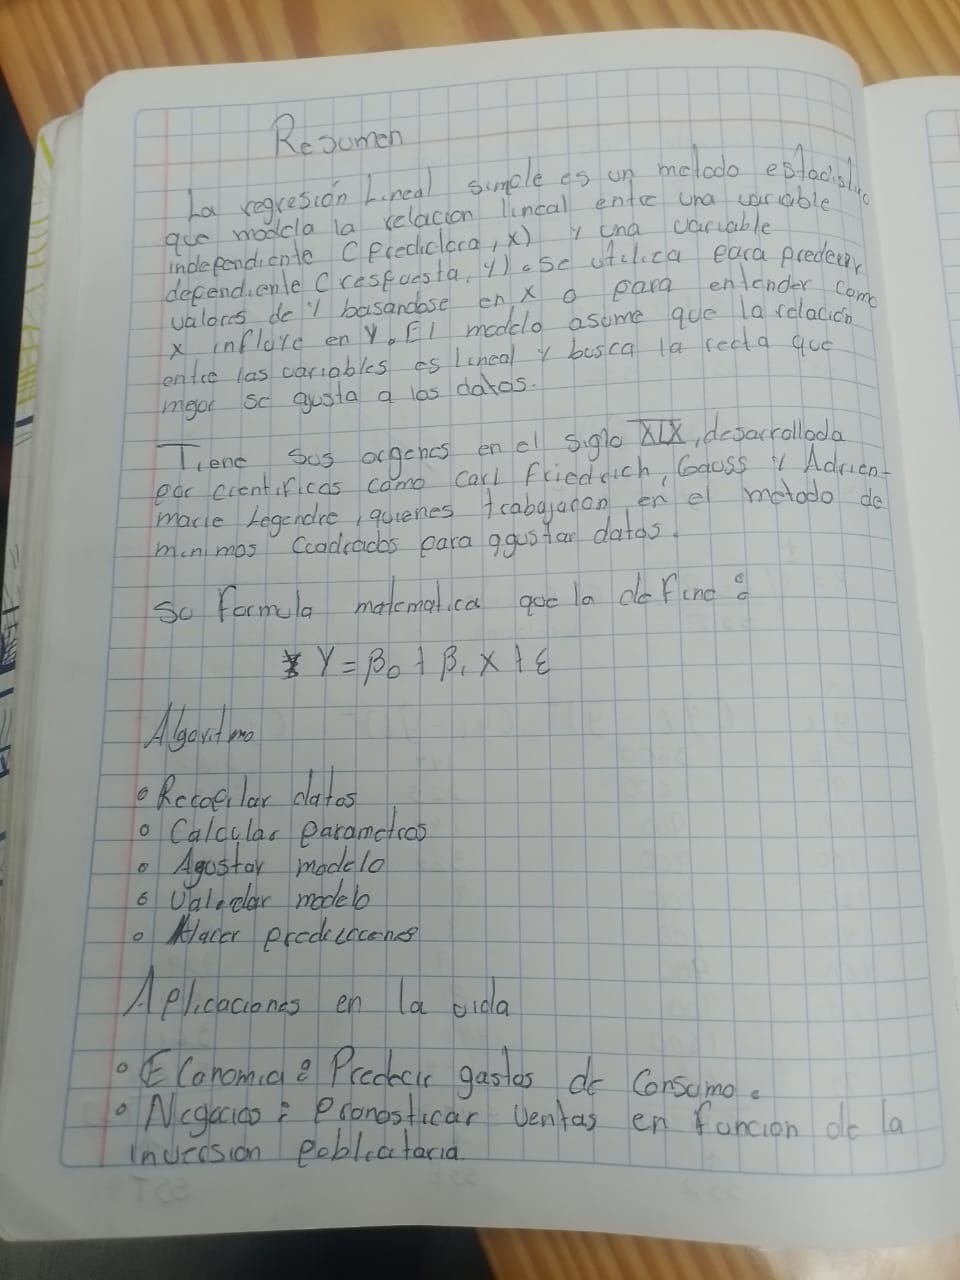 Resumen
La regresión Lineal simple es un metodo estadistic
que modela la relacion lineal entre una variable
independiente (Predictora, x) y una variable
dependiente (respuesta, y). Se utilica para predecir
valores de Y basandose en x o para entender como
x influye en Y. El modelo asume que la relación
entre las variables es lineal y busca la recta que
mejor se ajusta a los datos.
Tiene sus orgenes en el siglo XIX, desarrollada
por cientificos como Carl Friedrich, Gauss y Adrien-
marie Legendre, quienes trabajaron en el metodo de
minimos Cuadrados para ajustar datos.
Su formula matematica que la define:
Y = β0 + β1 X + ε
Algoritmo
• Recopilar datos
• Calcular parametros
• Ajustar modelo
• Validar modelo
• Hacer predicciones
Aplicaciones en la vida
• Economia: Predecir gastos de Consumo.
• Negocios: Pronosticar ventas en funcion de la
inversion publicitaria.